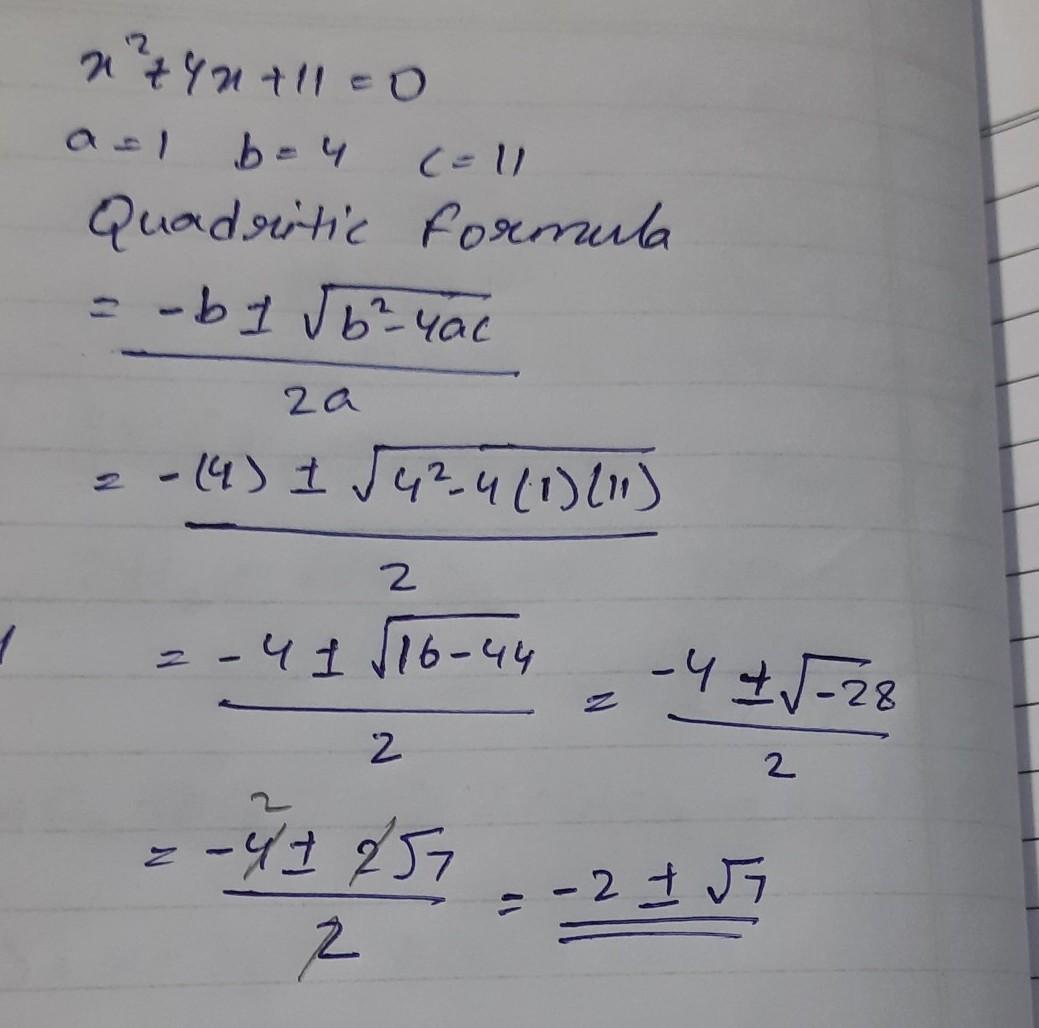 x²+4x+11=0
a=1 b=4 c=11
Quadritic formula
= -b ± √b²-4ac
2a
= -(4) ± √4²-4(1)(11)
2
= -4 ± √16-44 = -4 ±√-28
2 2
2
= -4 ± 2√7 = -2 ± √7
2